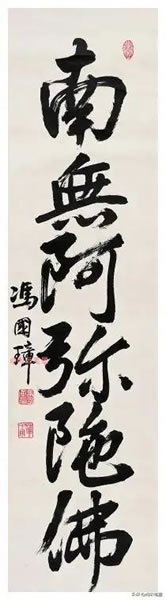 南無阿弥陀佛
馮國璋